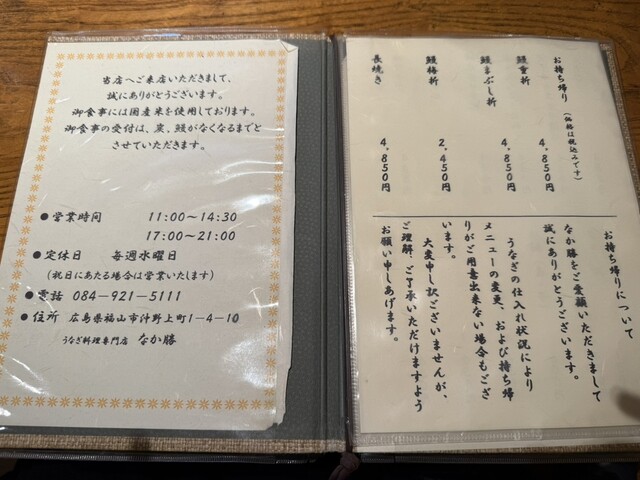 当店へご来店いただきまして、
誠にありがとうございます。
御食事には国産米を使用しております。
御食事の受付は、炭、鰻がなくなるまでと
させていただきます。
●営業時間 11:00～14:30
17:00～21:00
●定休日 毎週水曜日
(祝日にあたる場合は営業いたします)
●電話 084－921－5111
●住所 広島県福山市沖野上町1－4－10
うなぎ料理専門店 なか勝
お持ち帰り (価格は税込みです)
鰻重折 4,850円
鰻まぶし折 4,850円
鰻棒折 2,450円
長焼き 4,850円
お持ち帰りについて
なか勝をご愛顧いただきまして
誠にありがとうございます。
うなぎの仕入れ状況により
メニューの変更、および持ち帰
りがご用意出来ない場合もござ
います。
大変申し訳ございませんが、
ご理解、ご了承いただけますよう
お願い申しあげます。